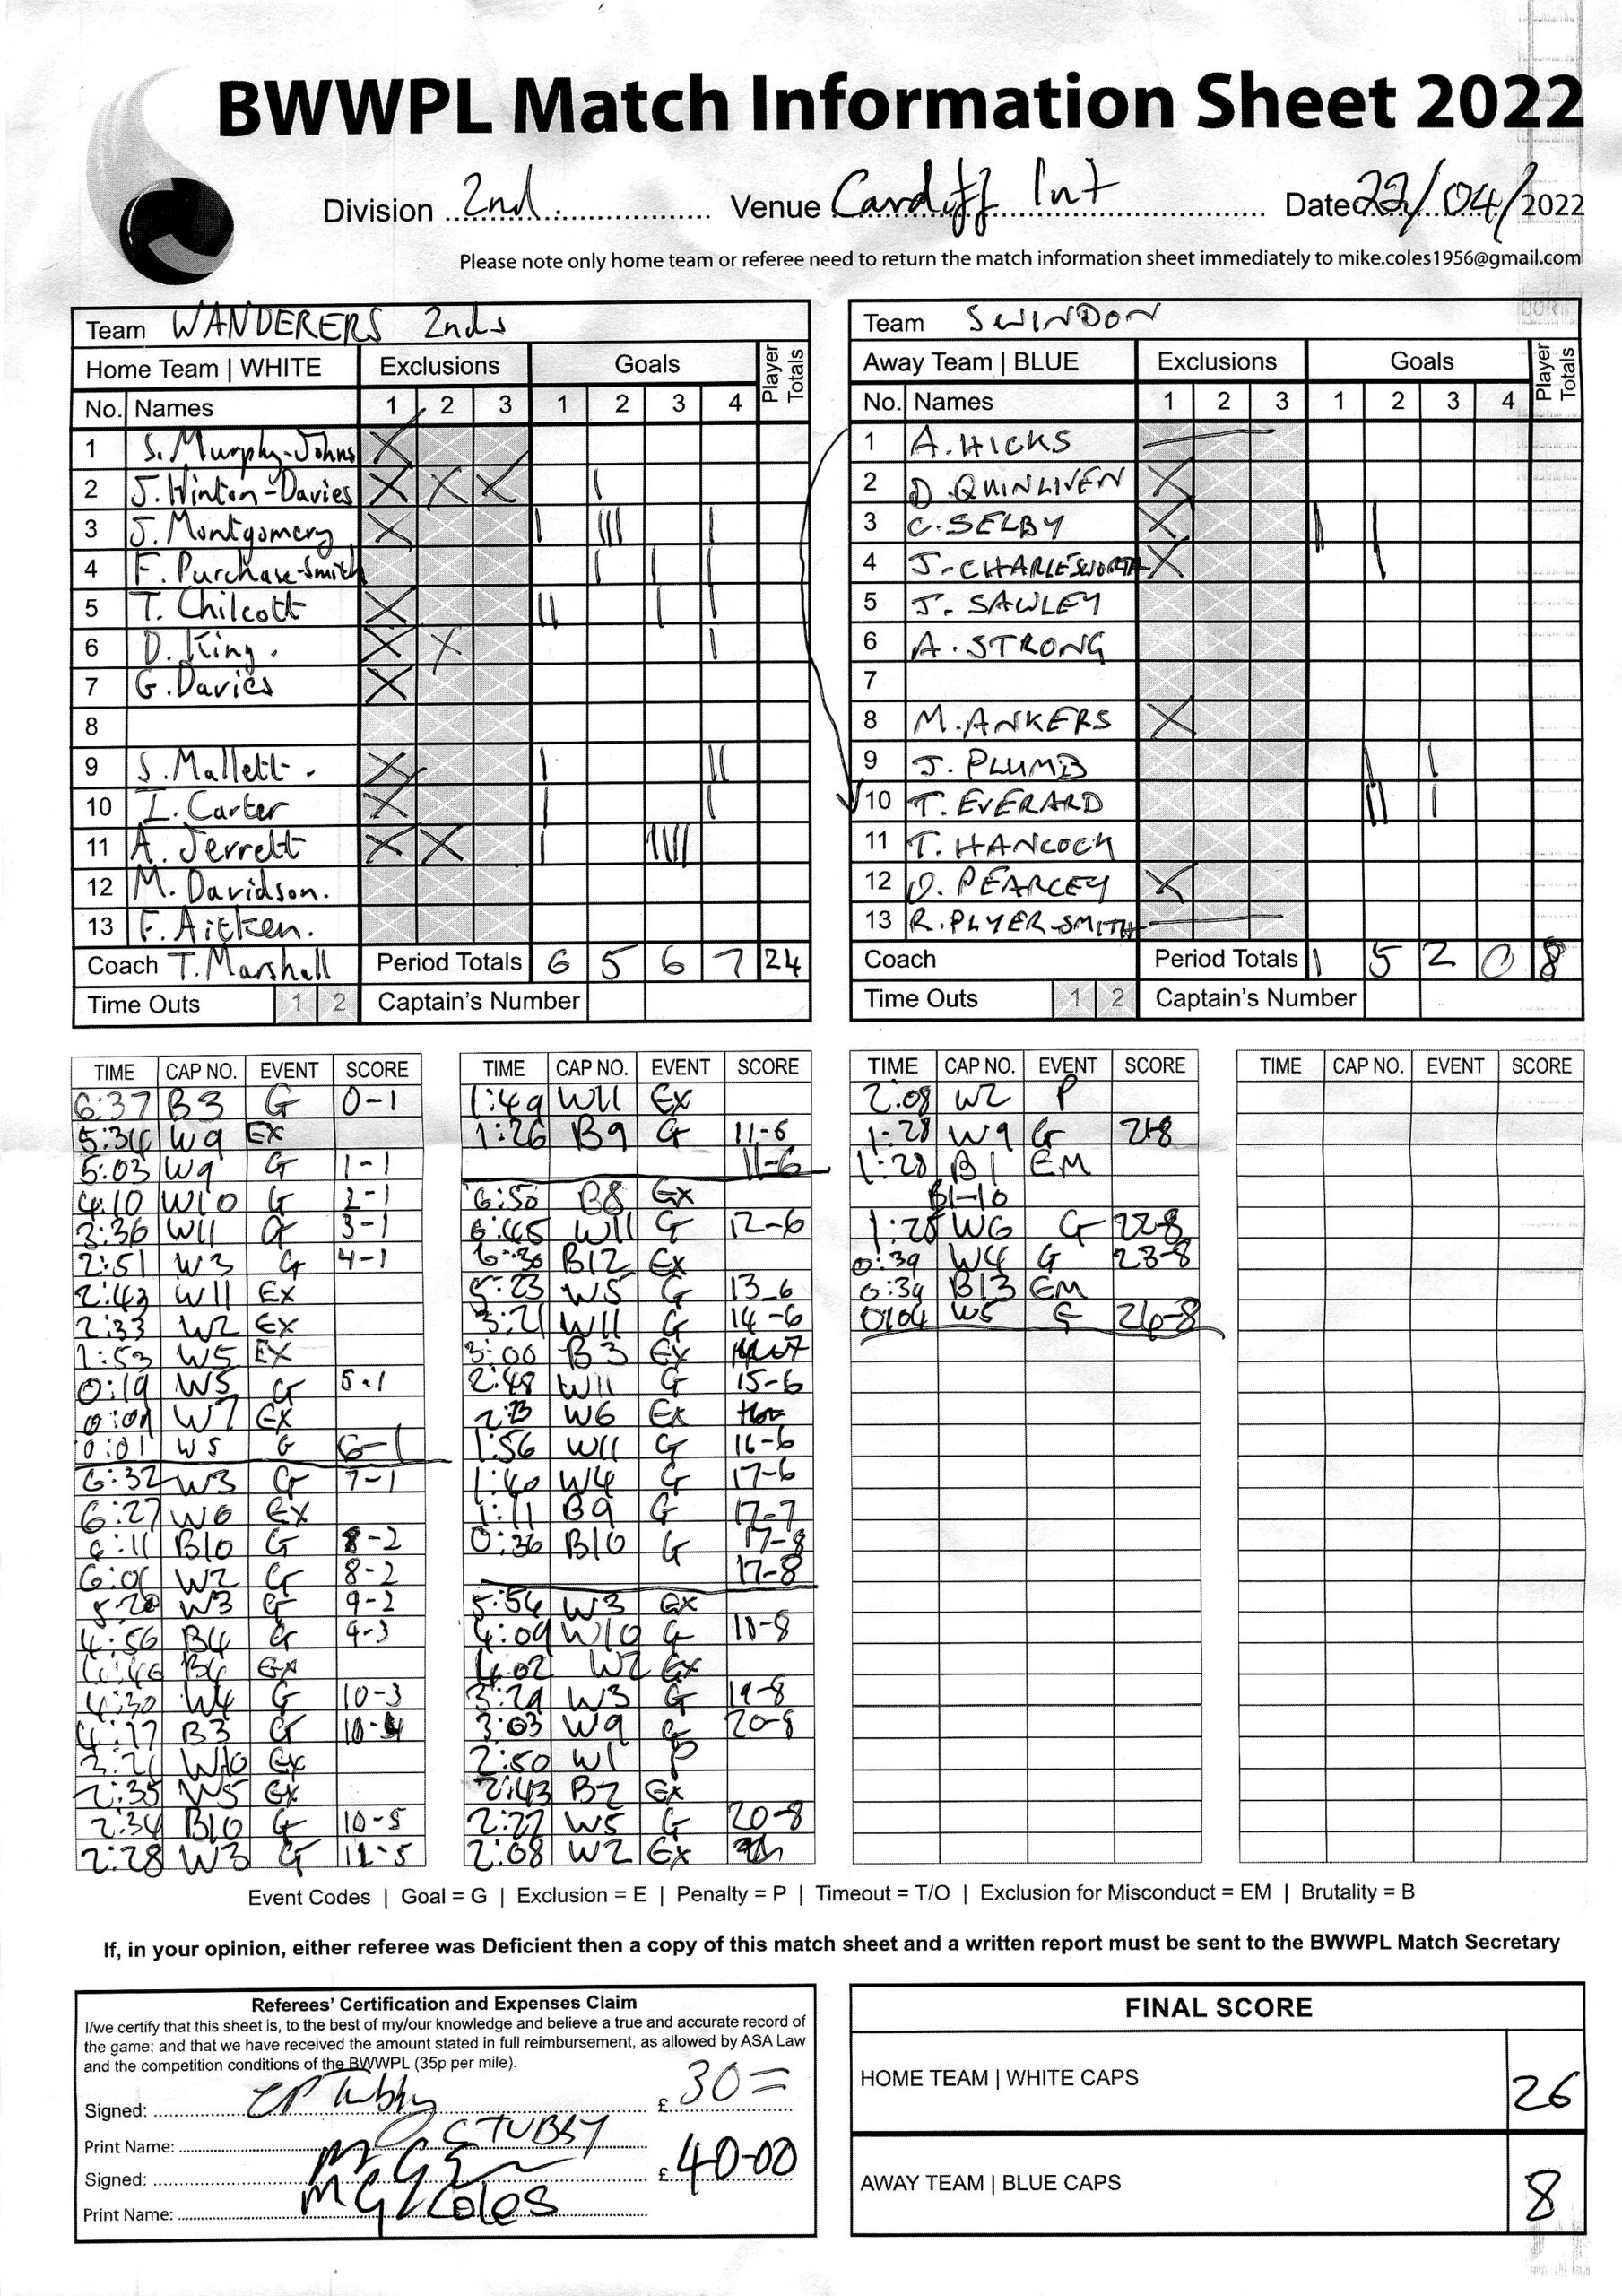 BWWPL Match Information Sheet 2022
Division 2nd Venue Cardiff Int Date 22/04/2022
Please note only home team or referee need to return the match information sheet immediately to mike.coles1956@gmail.com
Team WANDERERS 2nds
Home Team | WHITE Exclusions Goals Player Totals
No. Names 1 2 3 1 2 3 4
1 S. Murphy-Johns X
2 J. Hinton-Davies X X X |
3 J. Montgomery X | ||| |
4 F. Purchase-Smith | | |
5 T. Chilcott X || | |
6 D. King. X X |
7 G. Davies X
8
9 S. Mallett. X | ||
10 I. Carter X | |
11 A. Jerrett X X | ||||
12 M. Davidson.
13 F. Aitken.
Coach T. Marshall Period Totals 6 5 6 7 24
Time Outs 1 2 Captain's Number
Team SWINDON
Away Team | BLUE Exclusions Goals Player Totals
No. Names 1 2 3 1 2 3 4
1 A. HICKS
2 D. QUINLIVEN X
3 C. SELBY X | |
4 J. CHARLESWORTH X |
5 J. SAWLEY
6 A. STRONG
7
8 M. ANKERS X
9 J. PLUMB | |
10 T. EVERARD || |
11 T. HANCOCK
12 O. PEARCEY X
13 R. PLYER-SMITH
Coach Period Totals 1 5 2 0 8
Time Outs 1 2 Captain's Number
TIME CAP NO. EVENT SCORE
6:37 B3 G 0-1
5:34 W9 EX
5:03 W9 G 1-1
4:10 W10 G 2-1
3:36 W11 G 3-1
2:51 W3 G 4-1
2:43 W11 EX
2:33 W2 EX
1:53 W5 EX
0:19 W5 G 5-1
0:09 W7 EX
0:01 W5 G 6-1
6:32 W3 G 7-1
6:27 W6 EX
6:11 B10 G 8-2
6:01 W2 G 8-2
5:20 W3 G 9-2
4:56 B4 G 9-3
4:46 B4 EX
4:30 W4 G 10-3
4:17 B3 G 10-4
3:21 W10 EX
2:35 W5 EX
2:34 B10 G 10-5
2:28 W3 G 11-5
TIME CAP NO. EVENT SCORE
1:49 W11 EX
1:26 B9 G 11-6
11-6
6:50 B8 EX
6:45 W11 G 12-6
6:30 B12 EX
5:23 W5 G 13-6
3:21 W11 G 14-6
3:00 B3 EX
2:48 W11 G 15-6
2:23 W6 EX
1:56 W11 G 16-6
1:40 W4 G 17-6
1:11 B9 G 17-7
0:36 B10 G 17-8
17-8
5:54 W3 EX
4:09 W10 G 18-8
4:02 W2 EX
3:29 W3 G 19-8
3:03 W9 G 20-8
2:50 W1 P
2:43 B2 EX
2:27 W5 G 20-8
2:08 W2 EX
TIME CAP NO. EVENT SCORE
2:08 W2 P
1:28 W9 G 21-8
1:28 B1 EM
B1-10
1:25 W6 G 22-8
0:39 W4 G 23-8
0:39 B13 EM
0:04 W5 G 24-8
TIME CAP NO. EVENT SCORE
Event Codes | Goal = G | Exclusion = E | Penalty = P | Timeout = T/O | Exclusion for Misconduct = EM | Brutality = B
If, in your opinion, either referee was Deficient then a copy of this match sheet and a written report must be sent to the BWWPL Match Secretary
Referees' Certification and Expenses Claim
I/we certify that this sheet is, to the best of my/our knowledge and believe a true and accurate record of
the game; and that we have received the amount stated in full reimbursement, as allowed by ASA Law
and the competition conditions of the BWWPL (35p per mile).
Signed: £ 30=
Print Name: STUBBY
Signed: £ 40-00
Print Name: M G Coles
FINAL SCORE
HOME TEAM | WHITE CAPS 26
AWAY TEAM | BLUE CAPS 8